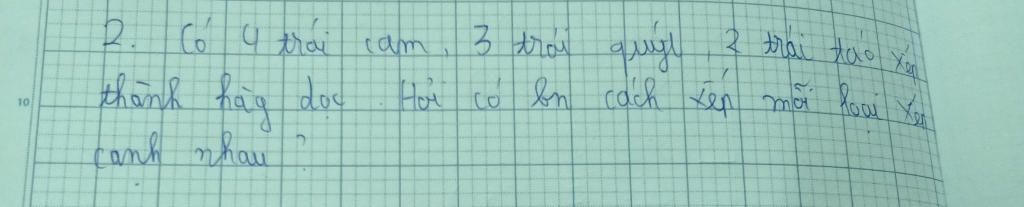 2. Có 4 trái cam, 3 trái quýt, 2 trái táo xếp
thành hàg dọc. Hỏi có bn cách xếp mỗi loại xếp
cạnh nhau?
10